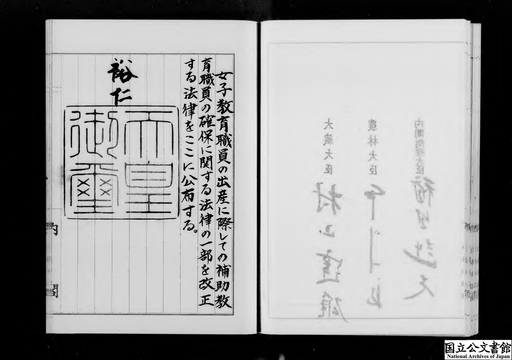 女子教育職員の出産に際しての補助教
育職員の確保に関する法律の一部を改正
する法律をここに公布する。
裕仁
天皇
御璽
内閣
内閣総理大臣
農林大臣
大蔵大臣
村山達雄
国立公文書館
National Archives of Japan